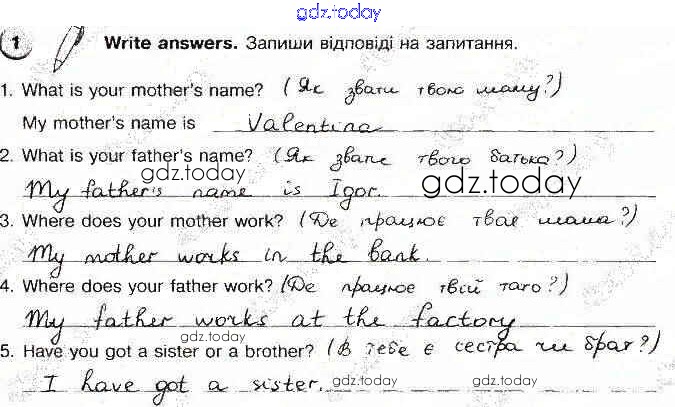 gdz.today
1 Write answers. Запиши відповіді на запитання.
1. What is your mother's name? (Як звати твою маму?)
My mother's name is Valentina
2. What is your father's name? (Як звати твого батька?)
gdz.today
My father's name is Igor. gdz.today
3. Where does your mother work? (Де працює твоя мама?)
My mother works in the bank.
4. Where does your father work? (Де працює твій тато?)
My father works at the factory
gdz.today
5. Have you got a sister or a brother? (В тебе є сестра чи брат?)
I have got a sister. gdz.today gdz.today